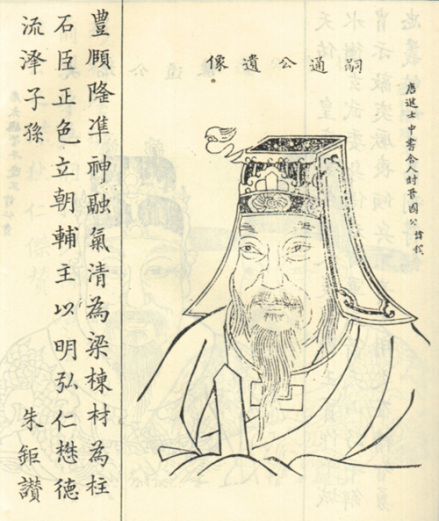 嗣通公遺像
唐進士中書舍人封晉國公諱
豐頤隆準神融氣清為梁棟材為柱
石臣正色立朝輔主以明弘仁懋德
流澤子孫
朱鉅讚